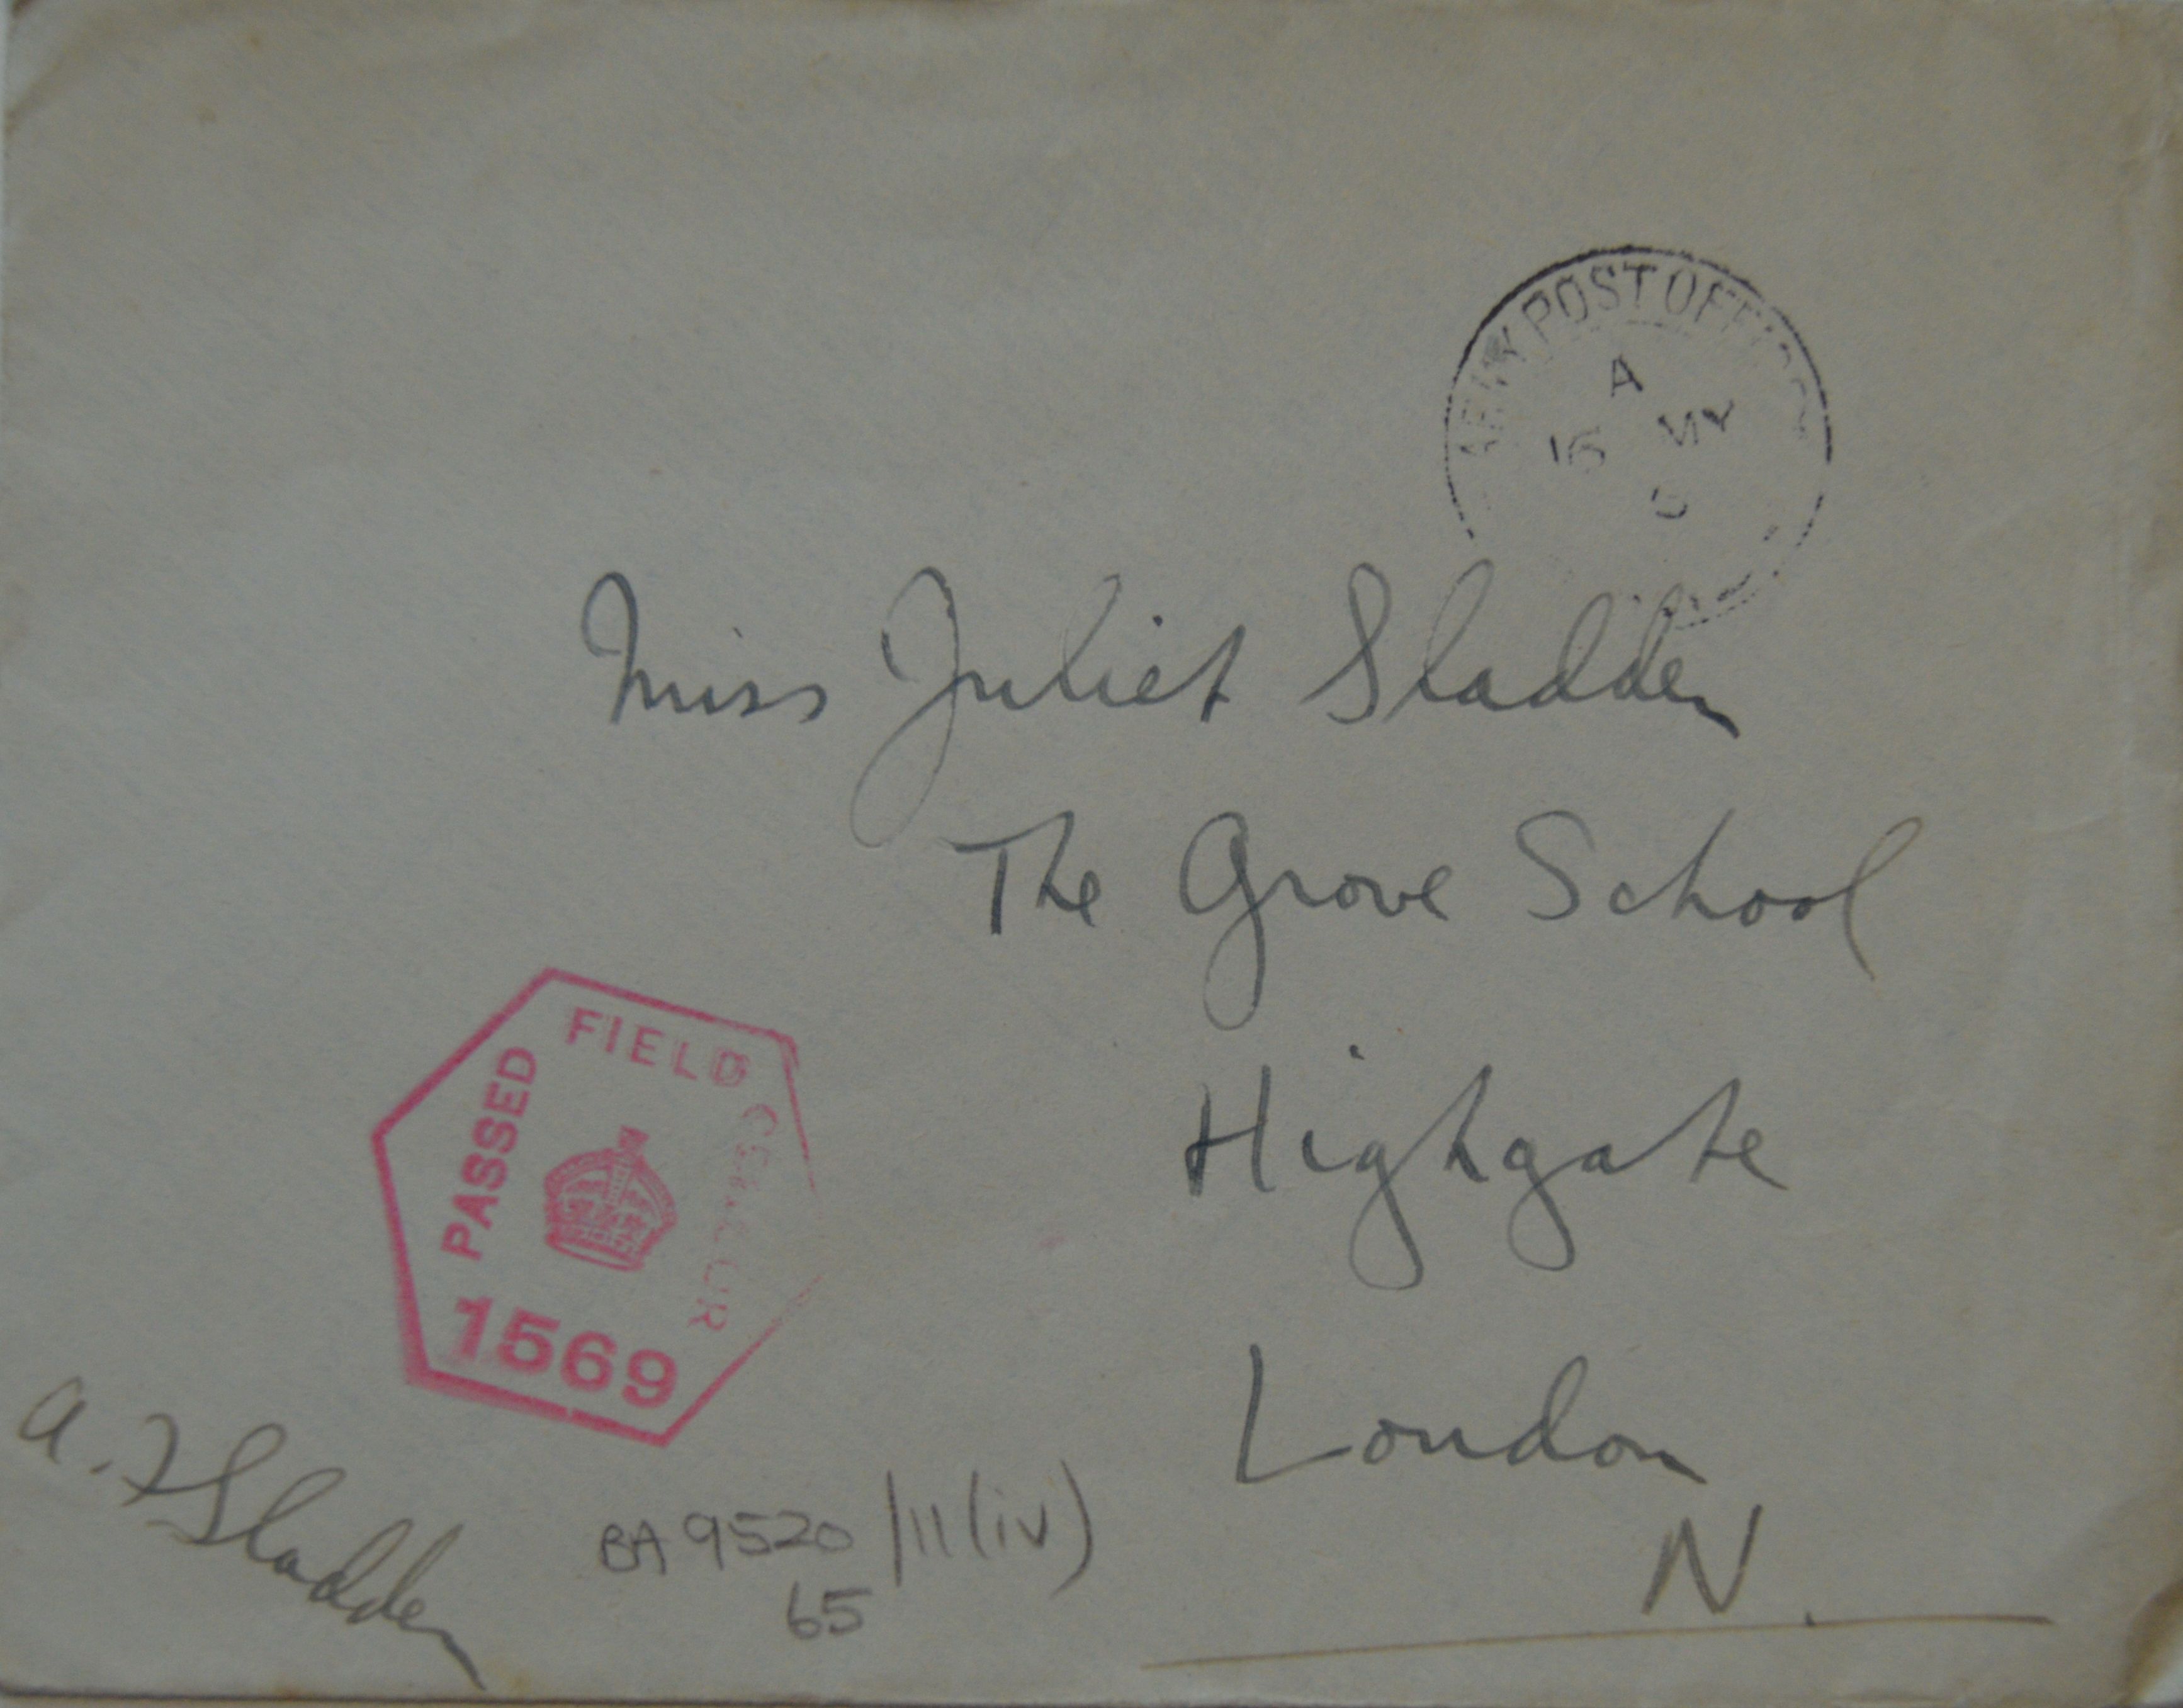 ARMY POST OFFICE
A
16 MY
Miss Juliet Sladden
The Grove School
Highgate
London
N.
PASSED FIELD CENSOR
1569
A. F Sladden
BA 9520/11(iv)
65